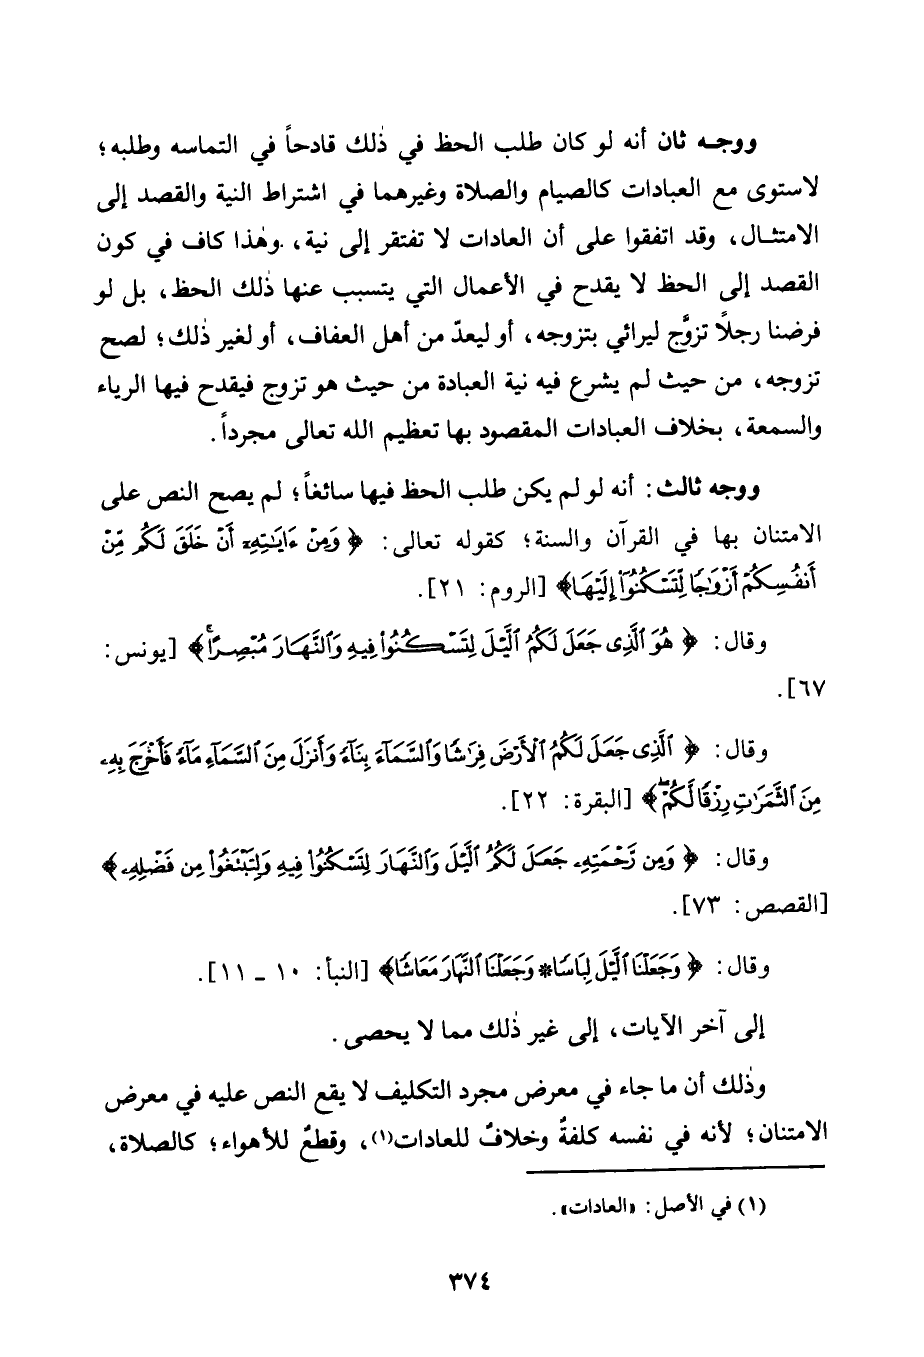 ووجـه ثان أنه لو كان طلب الحظ في ذٰلك قادحاً في التماسه وطلبه؛
لاستوى مع العبادات كالصيام والصلاة وغيرهما في اشتراط النية والقصد إلى
الامتثـال، وقد اتفقوا على أن العادات لا تفتقر إلى نية، وهٰذا كاف في كون
القصد إلى الحظ لا يقدح في الأعمال التي يتسبب عنها ذٰلك الحظ، بل لو
فرضنا رجلاً تزوَّج ليرائي بتزوجه، أو ليعدّ من أهل العفاف، أو لغير ذٰلك؛ لصح
تزوجه، من حيث لم يشرع فيه نية العبادة من حيث هو تزوج فيقدح فيها الرياء
والسمعة، بخلاف العبادات المقصود بها تعظيم الله تعالى مجرداً.
ووجه ثالث: أنه لو لم يكن طلب الحظ فيها سائغاً؛ لم يصح النص على
الامتنان بها في القرآن والسنة؛ كقوله تعالى: ﴿ وَمِنْ ءَايَـٰتِهِۦٓ أَنْ خَلَقَ لَكُم مِّنْ
أَنفُسِكُمْ أَزْوَٰجًا لِّتَسْكُنُوٓا۟ إِلَيْهَا﴾ [الروم: ٢١].
وقال: ﴿ هُوَ ٱلَّذِى جَعَلَ لَكُمُ ٱلَّيْلَ لِتَسْكُنُوا۟ فِيهِ وَٱلنَّهَارَ مُبْصِرًاۚ﴾ [يونس:
٦٧].
وقال: ﴿ ٱلَّذِى جَعَلَ لَكُمُ ٱلْأَرْضَ فِرَٰشًا وَٱلسَّمَآءَ بِنَآءً وَأَنزَلَ مِنَ ٱلسَّمَآءِ مَآءً فَأَخْرَجَ بِهِۦ
مِنَ ٱلثَّمَرَٰتِ رِزْقًا لَّكُمْۖ﴾ [البقرة: ٢٢].
وقال: ﴿ وَمِن رَّحْمَتِهِۦ جَعَلَ لَكُمُ ٱلَّيْلَ وَٱلنَّهَارَ لِتَسْكُنُوا۟ فِيهِ وَلِتَبْتَغُوا۟ مِن فَضْلِهِۦ﴾
[القصص: ٧٣].
وقال: ﴿ وَجَعَلْنَا ٱلَّيْلَ لِبَاسًا* وَجَعَلْنَا ٱلنَّهَارَ مَعَاشًا﴾ [النبأ: ١٠ ـ ١١].
إلى آخر الآيات، إلى غير ذٰلك مما لا يحصى.
وذٰلك أن ما جاء في معرض مجرد التكليف لا يقع النص عليه في معرض
الامتنان؛ لأنه في نفسه كلفةٌ وخلافٌ للعادات(١)، وقطعٌ للأهواء؛ كالصلاة،
(١) في الأصل: «العادات».
٣٧٤